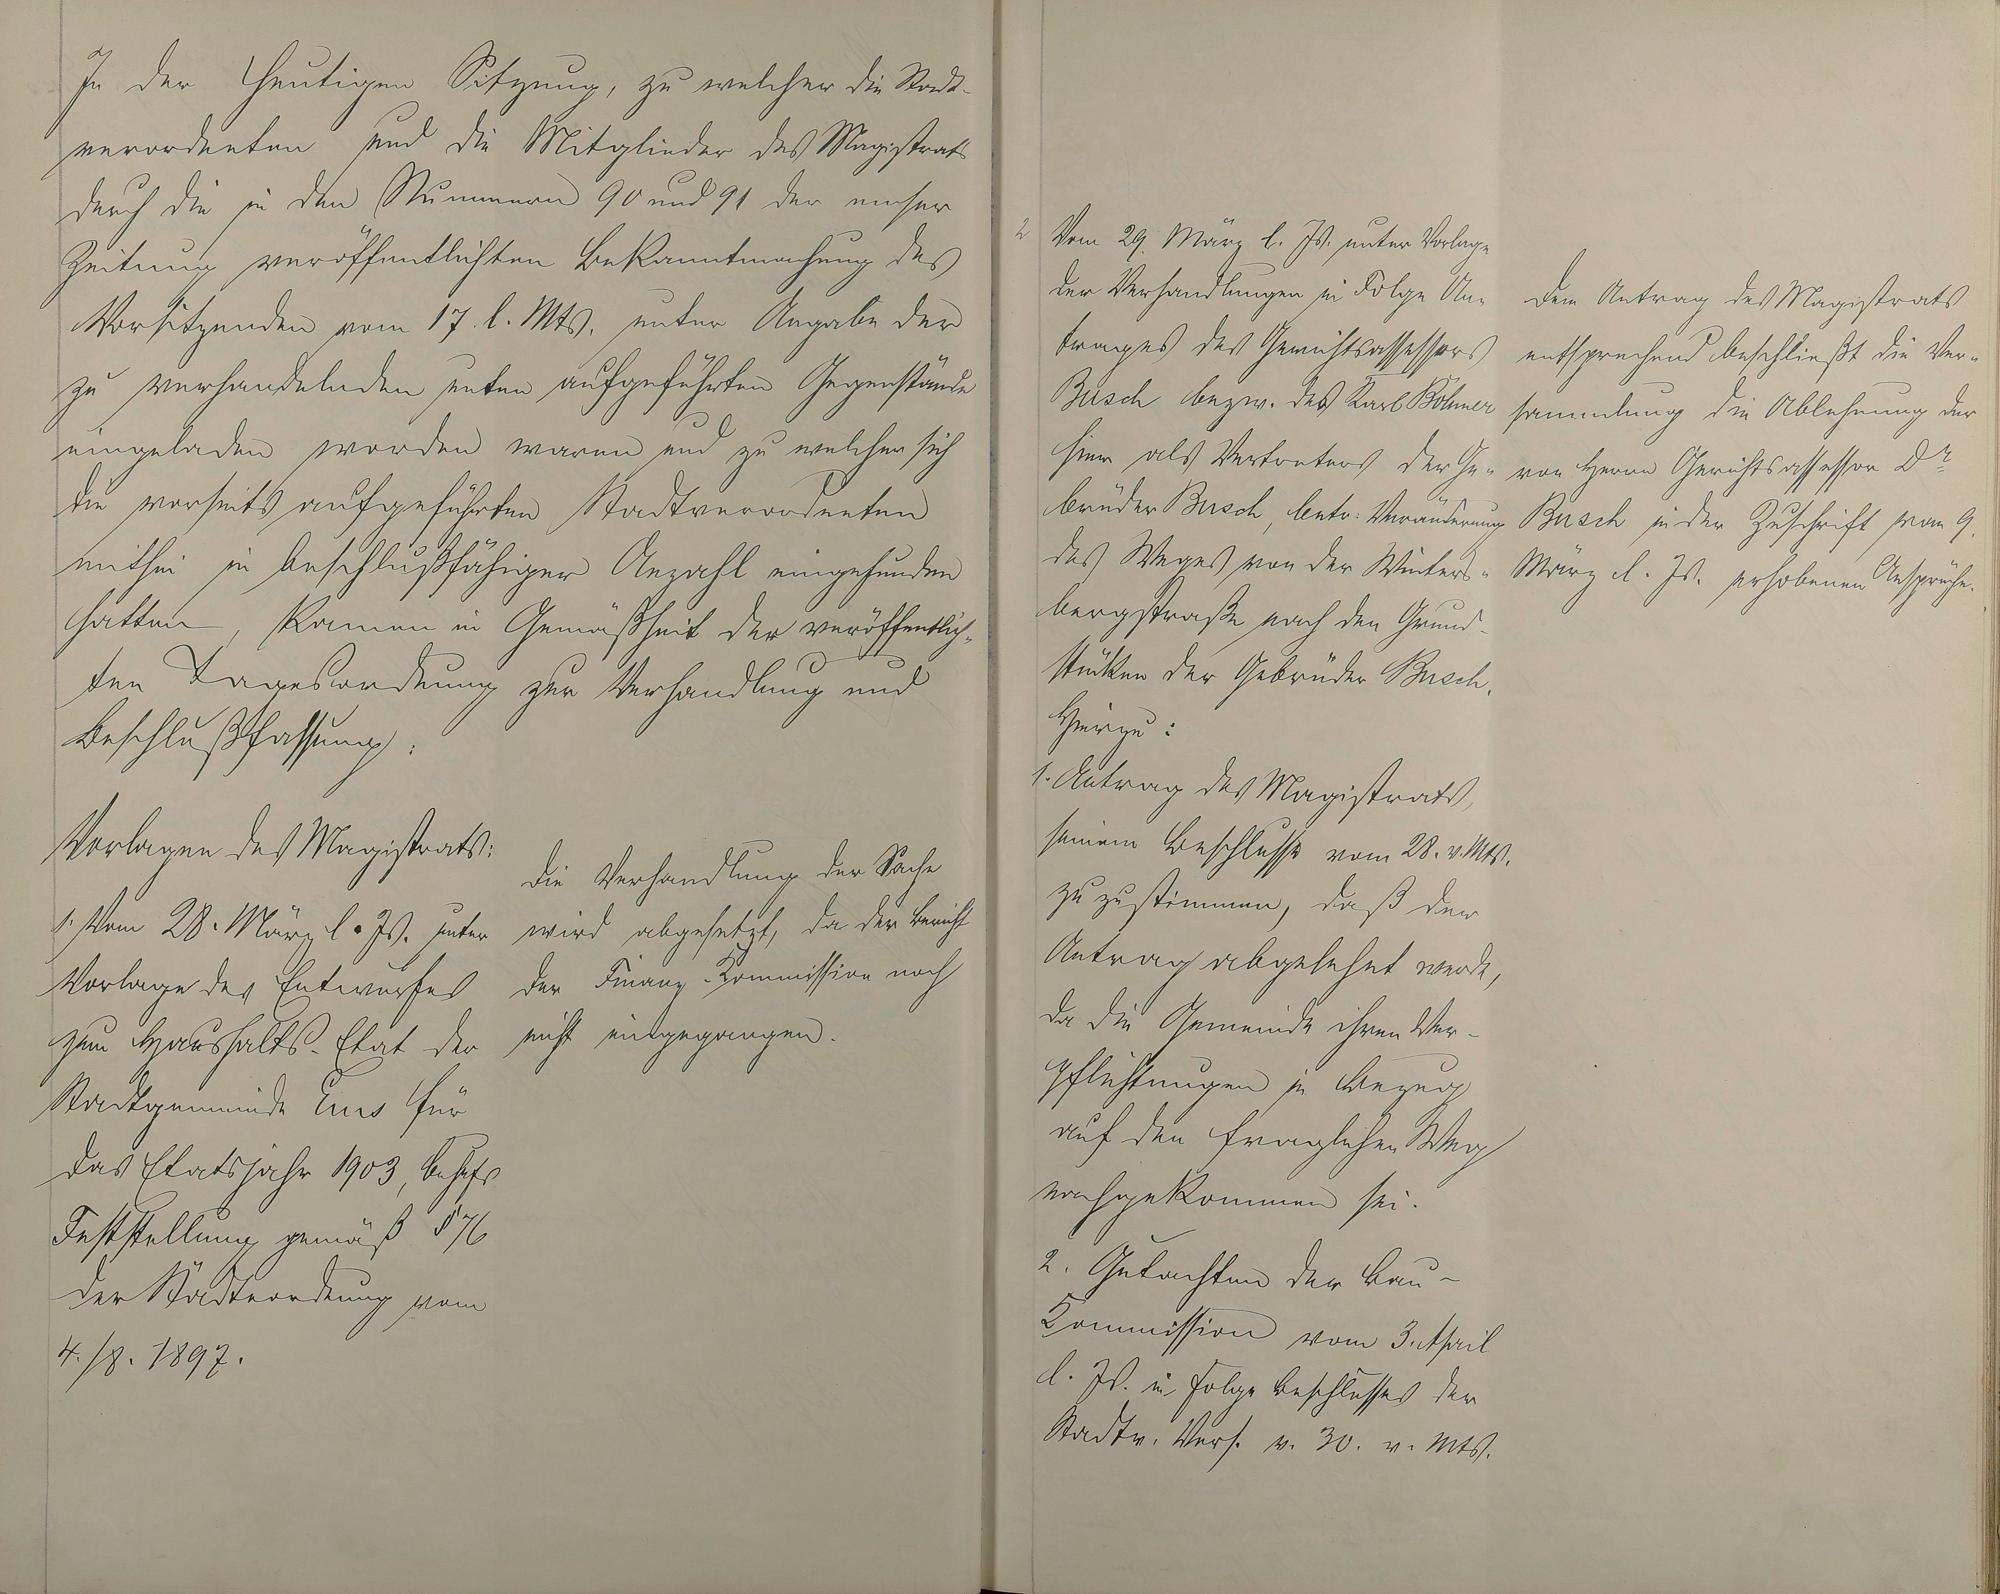 In der heutigen Sitzung, zu welcher die Stadt-
verordneten und die Mitglieder des Magistrats
durch die in den Nummern 90 und 91 der emser
Zeitung veröffentlichten Bekanntmachung des
Vorsitzenden vom 17. l. Mts. unter Angabe der
zu verhandelnden unten aufgeführten Gegenstände
eingeladen worden waren und zu welcher sich
die vorseits aufgeführten Stadtverordneten
mithin in beschlußfähiger Anzahl eingefunden
hatten, kamen in Gemäßheit der veröffentlich-
ten Tagesordnung zur Verhandlung und
Beschlußfassung:
Vorlagen des Magistrats:
1. Vom 28. März l. Js. unter
Vorlage des Entwurfes
zum Haushalts-Etat der
Stadtgemeinde Ems für
das Etatsjahr 1903, behufs
Feststellung gemäß § 76
der Städteordnung vom
4./8. 1897.
Die Verhandlung der Sache
wird abgesetzt, da der Bericht
der Finanz-Kommission noch
nicht eingegangen.
2 Vom 29. März l. Js. unter Vorlage
der Verhandlungen in Folge An-
trages des Gerichtsassessors
Busch bezw. des Karl Böhmer
hier als Vertreters der Ge-
brüder Busch, betr. Veränderung
des Weges von der Winters-
bergstraße nach den Grund-
stücken der Gebrüder Busch.
Hierzu:
1. Antrag des Magistrats,
seinem Beschlusse vom 28. v. Mts.
zuzustimmen, daß der
Antrag abgelehnt werde,
da die Gemeinde ihren Ver-
pflichtungen in Bezug
auf den fraglichen Weg
nachgekommen sei.
2. Gutachten der Bau-
Kommission vom 3. April
l. Js. in Folge Beschlusses der
Stadtv. Vers. v. 30. v. Mts.
Dem Antrag des Magistrats
entsprechend beschließt die Ver-
sammlung die Ablehnung der
von Herrn Gerichtsassessor Dr.
Busch in der Zuschrift vom 9.
März l. Js. erhobenen Ansprüche.